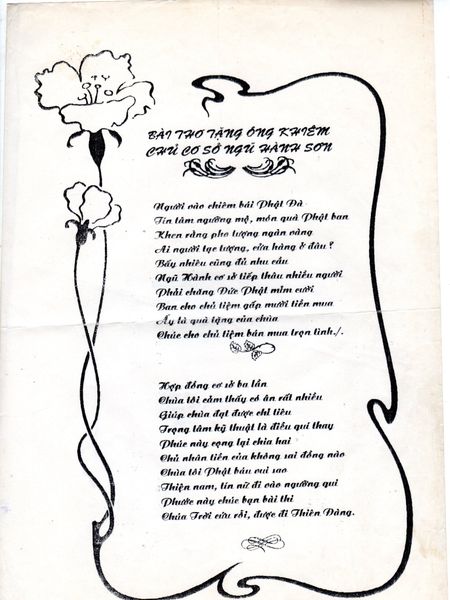 BÀI THƠ TẶNG ÔNG KHIÊM
CHỦ CƠ SỞ NGŨ HÀNH SƠN
Người vào chiêm bái Phật Đà
Tín tâm ngưỡng mộ, món quà Phật ban
Khen rằng pho tượng ngàn vàng
Ai người tạc tượng, cửa hàng ở đâu ?
Bấy nhiêu cũng đủ nhu cầu
Ngũ Hành cơ sở tiếp thâu nhiều người
Phải chăng Đức Phật mỉm cười
Ban cho chủ tiệm gấp mười tiền mua
Ấy là quà tặng của chùa
Chúc cho chủ tiệm bán mua trọn tình./.
Hợp đồng cơ sở ba lần
Chùa tôi cảm thấy có ân rất nhiều
Giúp chùa đạt được chỉ tiêu
Trọng tâm kỹ thuật là điều quí thay
Phúc này cọng lại chia hai
Chủ nhân tiền của không sai đồng nào
Chùa tôi Phật báu vui sao
Thiện nam, tín nữ đi vào ngưỡng qui
Phước này chúc bạn bài thi
Chúa Trời cứu rỗi, được đi Thiên Đàng.